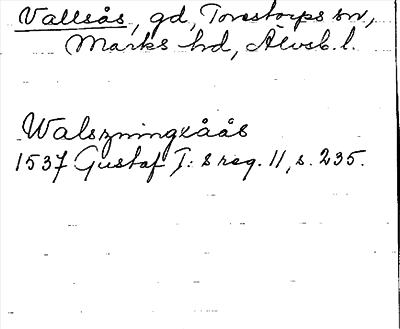 Vallsås, gd, Torestorps sn,
Marks hd, Älvsb. l.
Walszningxåås
1537 Gustaf I: s reg. 11, s. 235.